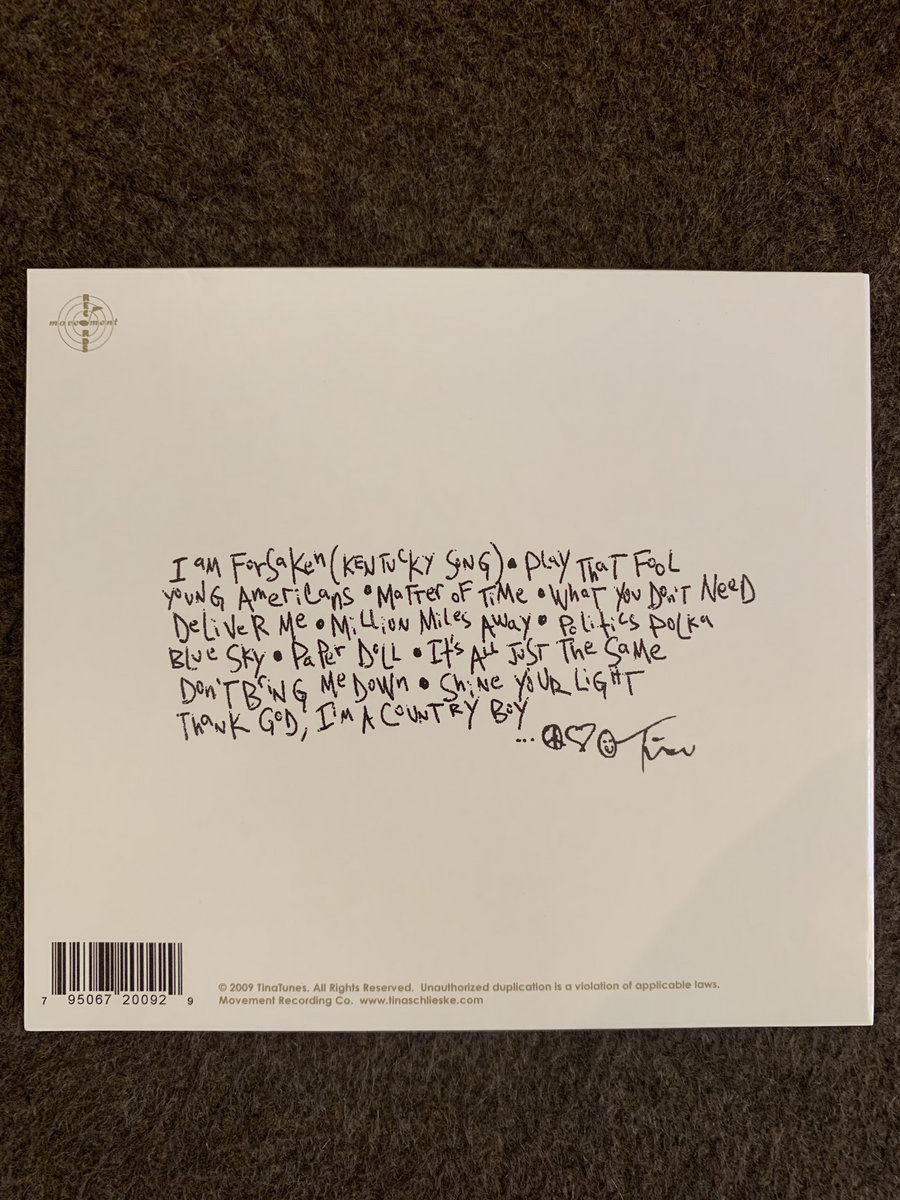 RECORDS
movement
I am Forsaken (Kentucky Song) • Play That Fool
Young Americans • Matter of Time • What You Don't Need
Deliver Me • Million Miles Away • Politics Polka
Blue Sky • Paper Doll • It's All Just The Same
Don't Bring Me Down • Shine Your Light
Thank God, I'm A Country Boy
... Tina
7 95067 20092 9
© 2009 TinaTunes. All Rights Reserved. Unauthorized duplication is a violation of applicable laws.
Movement Recording Co. www.tinaschlieske.com